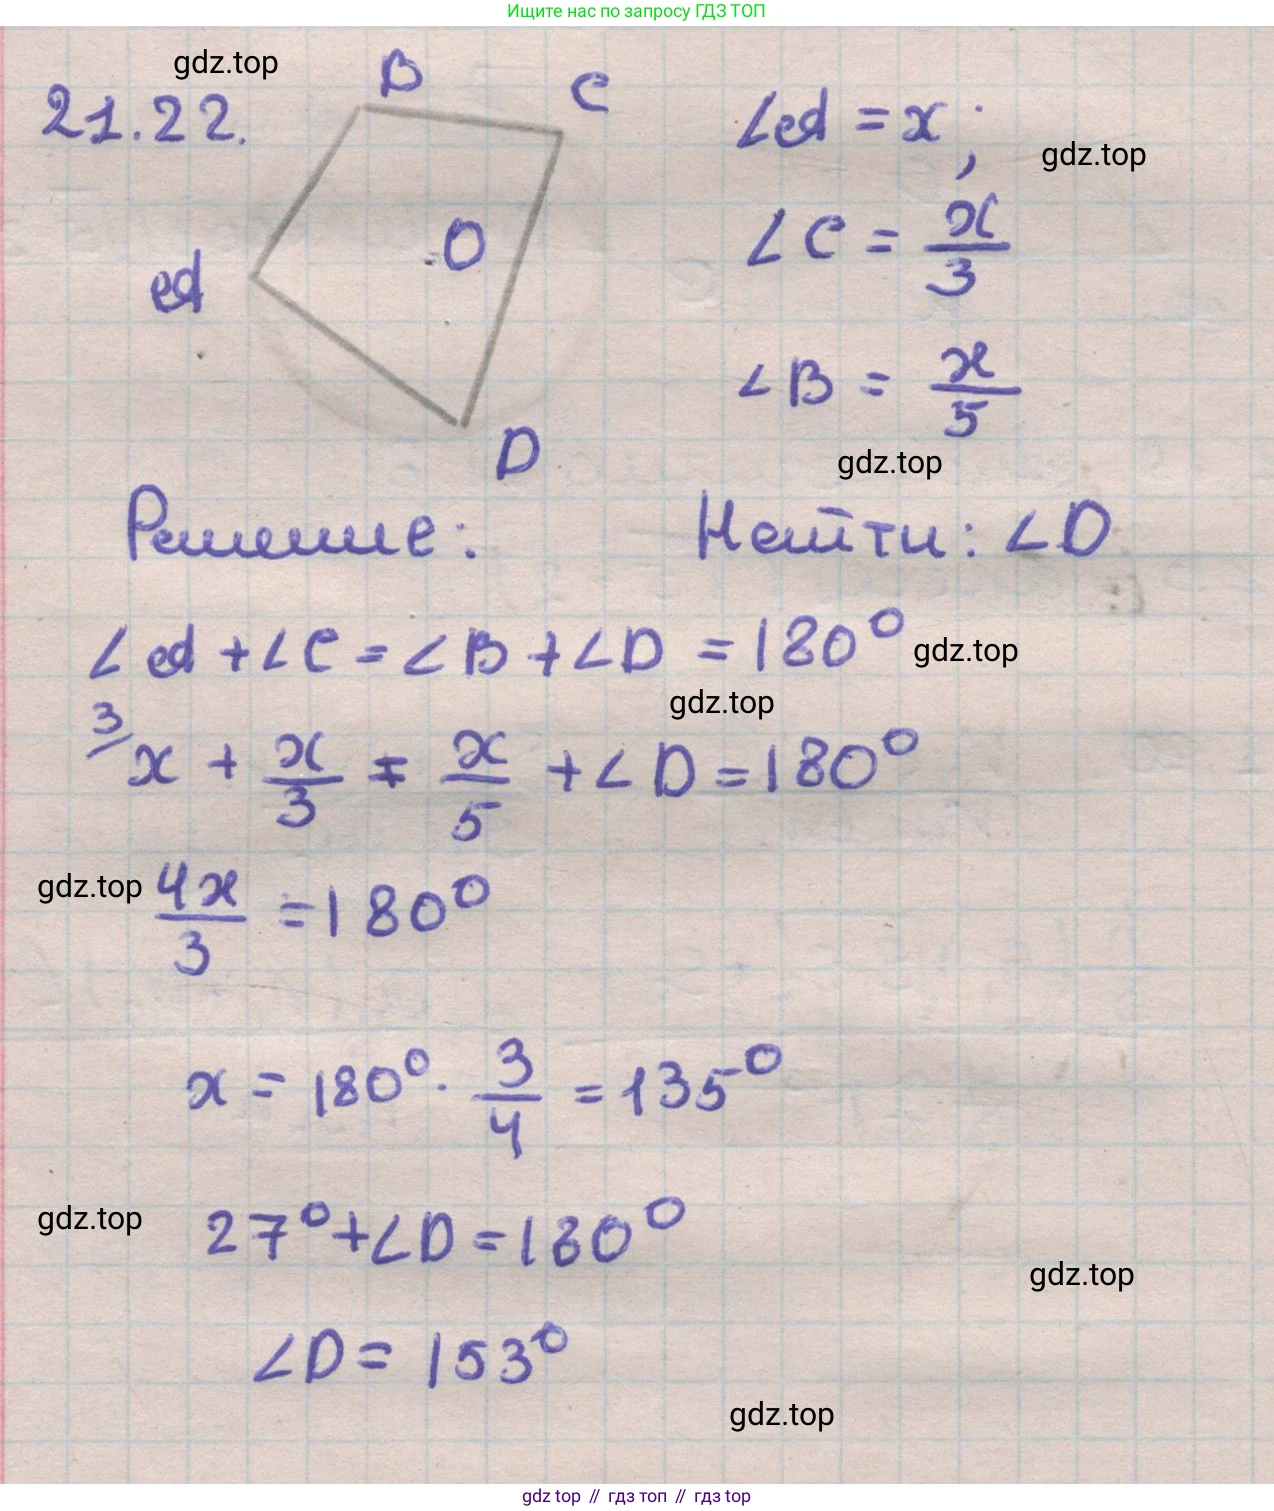 Ищите нас по запросу ГДЗ ТОП
gdz.top
21.22.
B
C
∠A = x;
gdz.top
∠C = x/3
O
A
∠B = x/5
D
gdz.top
Решение:
Найти: ∠D
∠A + ∠C = ∠B + ∠D = 180°
gdz.top
gdz.top
3/ x + x/3 = x/5 + ∠D = 180°
gdz.top
4x/3 = 180°
x = 180° · 3/4 = 135°
gdz.top
27° + ∠D = 180°
gdz.top
∠D = 153°
gdz.top
gdz top // гдз топ // gdz top